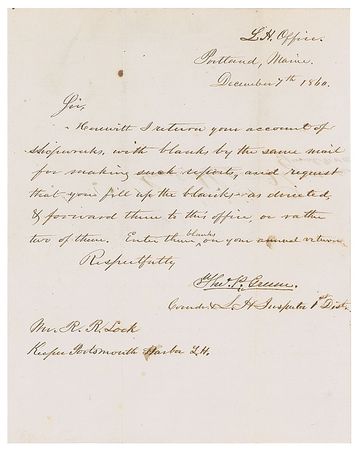 L. H. Office.
Portland, Maine.
December 7th 1860.
Sir,
Herewith I return your account of
shipwrecks, with blanks by the same mail
for making such reports, and request
that you fill up the blanks as directed
& forward them to this office, or rather
two of them. Enter these blanks on your annual return
Respectfully
Comdr & L. H. Inspector 1st Dist.
Mr. R. R. Lock
Keeper Portsmouth Harbor L.H.